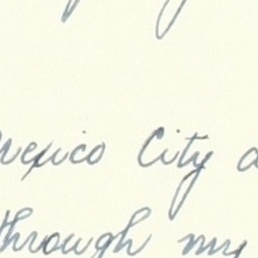 Mexico City
through my